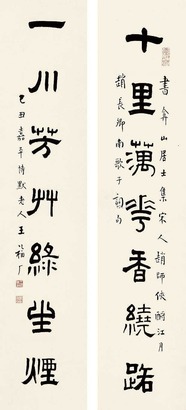 十里蕅華香繞路
書弇山居士集宋人趙師俠酹江月
趙長卿南歌子詞句
一川芳艸綠生煙
己丑嘉平持默老人王福厂